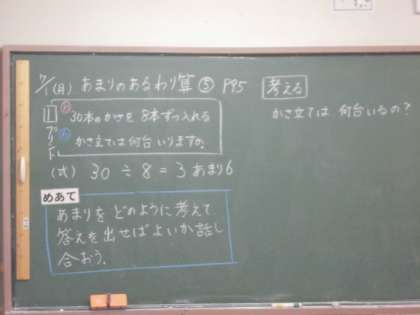 7/1(月) あまりのあるわり算 ⑤ P95
30本のかさを 8本ずつ入れる
かさ立ては何台いりますか。
プリント
(式) 30 ÷ 8 = 3 あまり6
めあて
あまりを どのように考えて
答えを出せばよいか話し
合おう。
考える
かさ立ては 何台いるの?